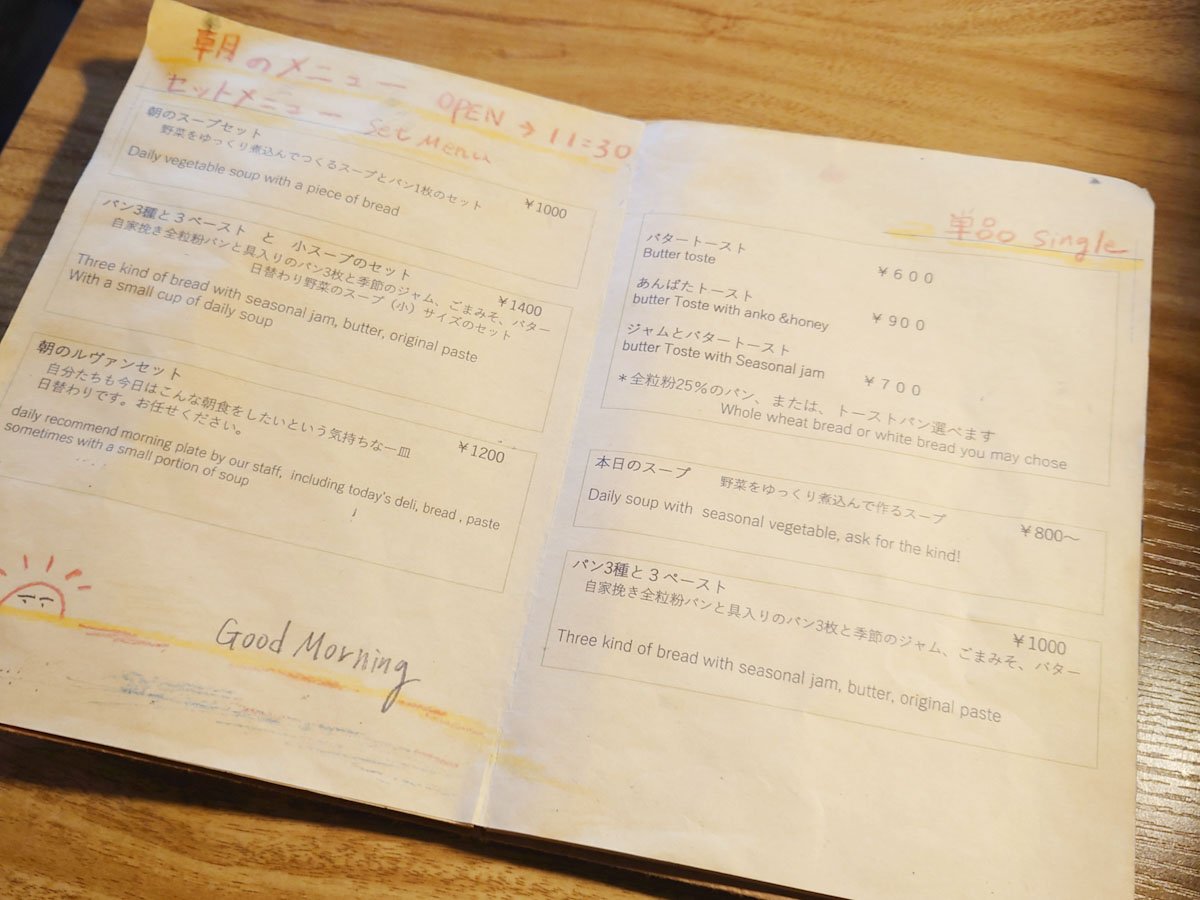 朝のメニュー OPEN → 11:30
セットメニュー Set Menu
朝のスープセット
野菜をゆっくり煮込んでつくるスープとパン1枚のセット ¥1000
Daily vegetable soup with a piece of bread
パン3種と3ペースト と 小スープのセット
自家挽き全粒粉パンと具入りのパン3枚と季節のジャム、ごまみそ、バター ¥1400
日替わり野菜のスープ(小)サイズのセット
Three kind of bread with seasonal jam, butter, original paste
With a small cup of daily soup
朝のルヴァンセット
自分たちも今日はこんな朝食をしたいという気持ちな一皿 ¥1200
日替わりです。お任せください。
daily recommend morning plate by our staff, including today's deli, bread , paste
sometimes with a small portion of soup
Good Morning
単品 Single
バタートースト ¥600
Butter toste
あんばたトースト ¥900
butter Toste with anko &honey
ジャムとバタートースト ¥700
butter Toste with Seasonal jam
*全粒粉25%のパン、または、トーストパン選べます
Whole wheat bread or white bread you may chose
本日のスープ 野菜をゆっくり煮込んで作るスープ ¥800~
Daily soup with seasonal vegetable, ask for the kind!
パン3種と3ペースト ¥1000
自家挽き全粒粉パンと具入りのパン3枚と季節のジャム、ごまみそ、バター
Three kind of bread with seasonal jam, butter, original paste